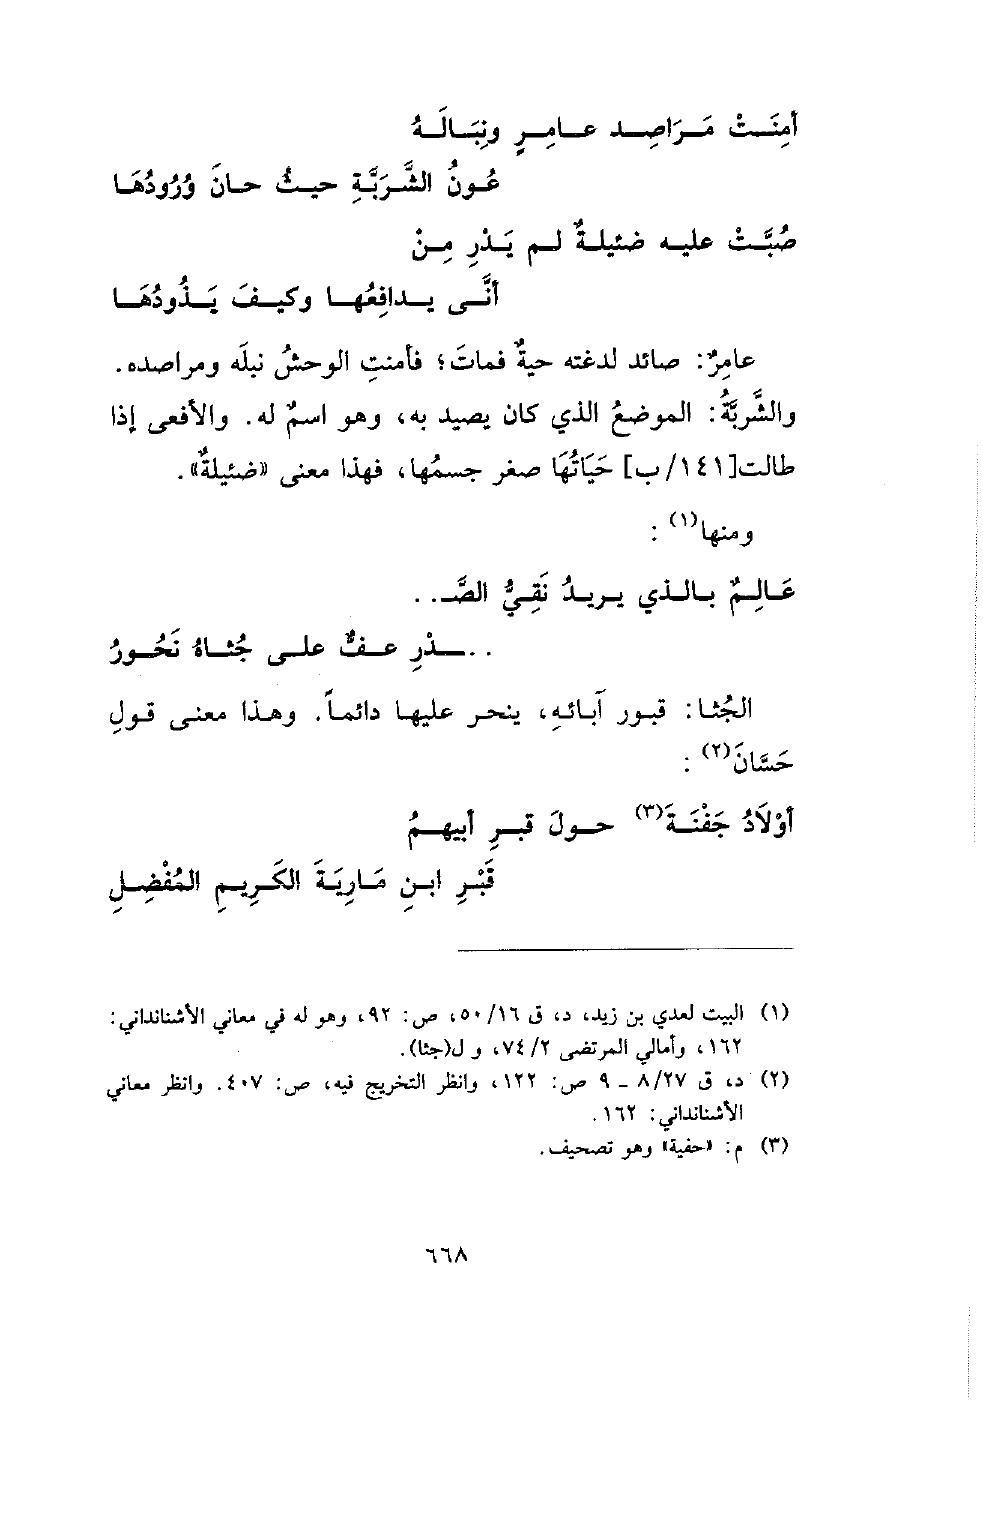 أَمِنَتْ مَرَاصِد عامِرٍ ونِبَالَهُ
عُونُ الشَّرَبَّةِ حيثُ حانَ وُرُودُهَا
صُبَّتْ عليه ضئيلةٌ لم يَدْرِ مِنْ
أنَّى يدافِعُها وكيفَ يَذُودُهَا
عامِرٌ: صائد لدغته حيةٌ فماتَ؛ فأمنتِ الوحشُ نبلَه ومراصده.
والشَّرَبَّةُ: الموضعُ الذي كان يصيد به، وهو اسمٌ له. والأفعى إذا
طالت[١٤١/ب] حَيَاتُهَا صغر جسمُها، فهذا معنى «ضئيلةٌ».
ومنها(١) :
عَالِمٌ بالذي يريدُ نَقِيُّ الصَّـ. .
. .ـدْرِ عفٌّ على جُثاهُ نَحُورُ
الجُثا: قبور آبائهِ، ينحر عليها دائماً. وهذا معنى قولِ
حَسَّانَ(٢) :
أوْلَادُ جَفْنَةَ(٣) حولَ قبرِ أبيهمُ
قَبْرِ ابنِ مَارِيَةَ الكَرِيمِ المُفْضِلِ
(١) البيت لعدي بن زيد، د، ق ٥٠/١٦، ص: ٩٢، وهو له في معاني الأشنانداني:
١٦٢، وأمالي المرتضى ٧٤/٢، و ل(جثا).
(٢) د، ق ٨/٢٧ ـ ٩ ص: ١٢٢، وانظر التخريج فيه، ص: ٤٠٧. وانظر معاني
الأشنانداني: ١٦٢.
(٣) م: «حفية» وهو تصحيف.
٦٦٨